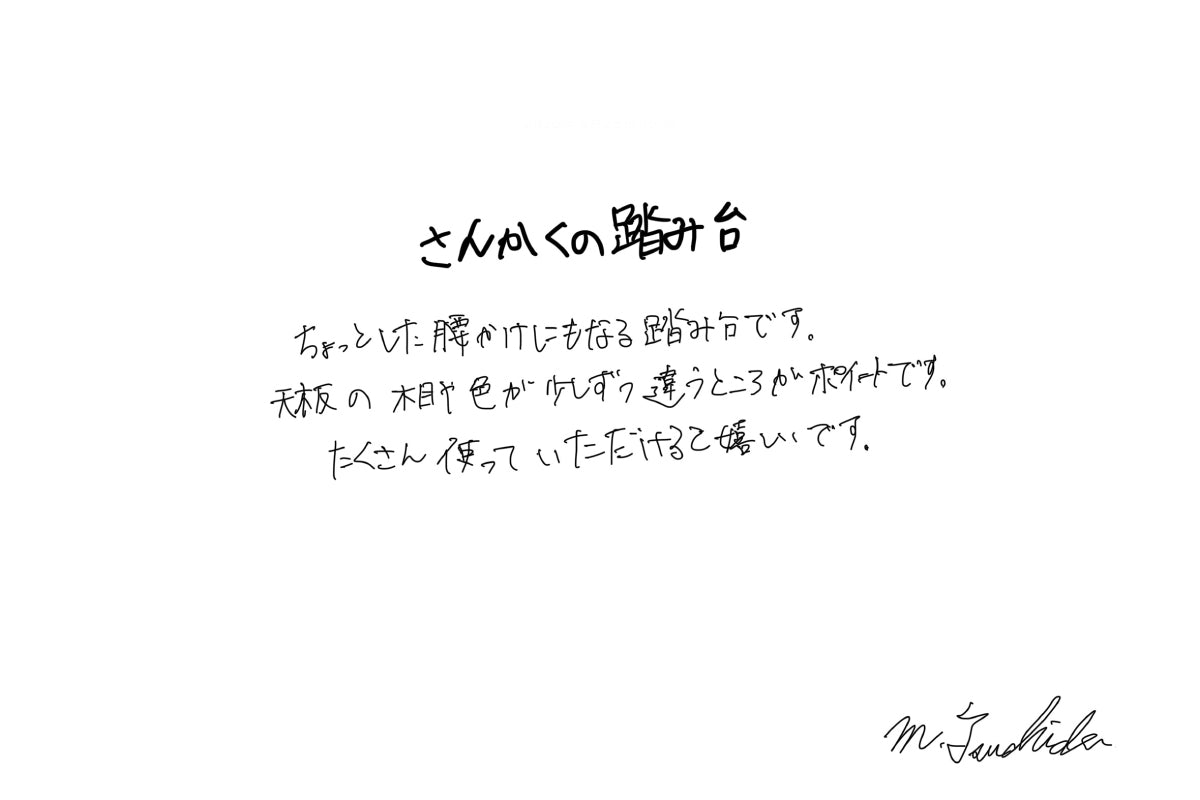 さんかくの踏み台
ちょっとした腰かけにもなる踏み台です。
天板の木目や色が少しずつ違うところがポイントです。
たくさん使っていただけると嬉しいです。
M. Tsuchida